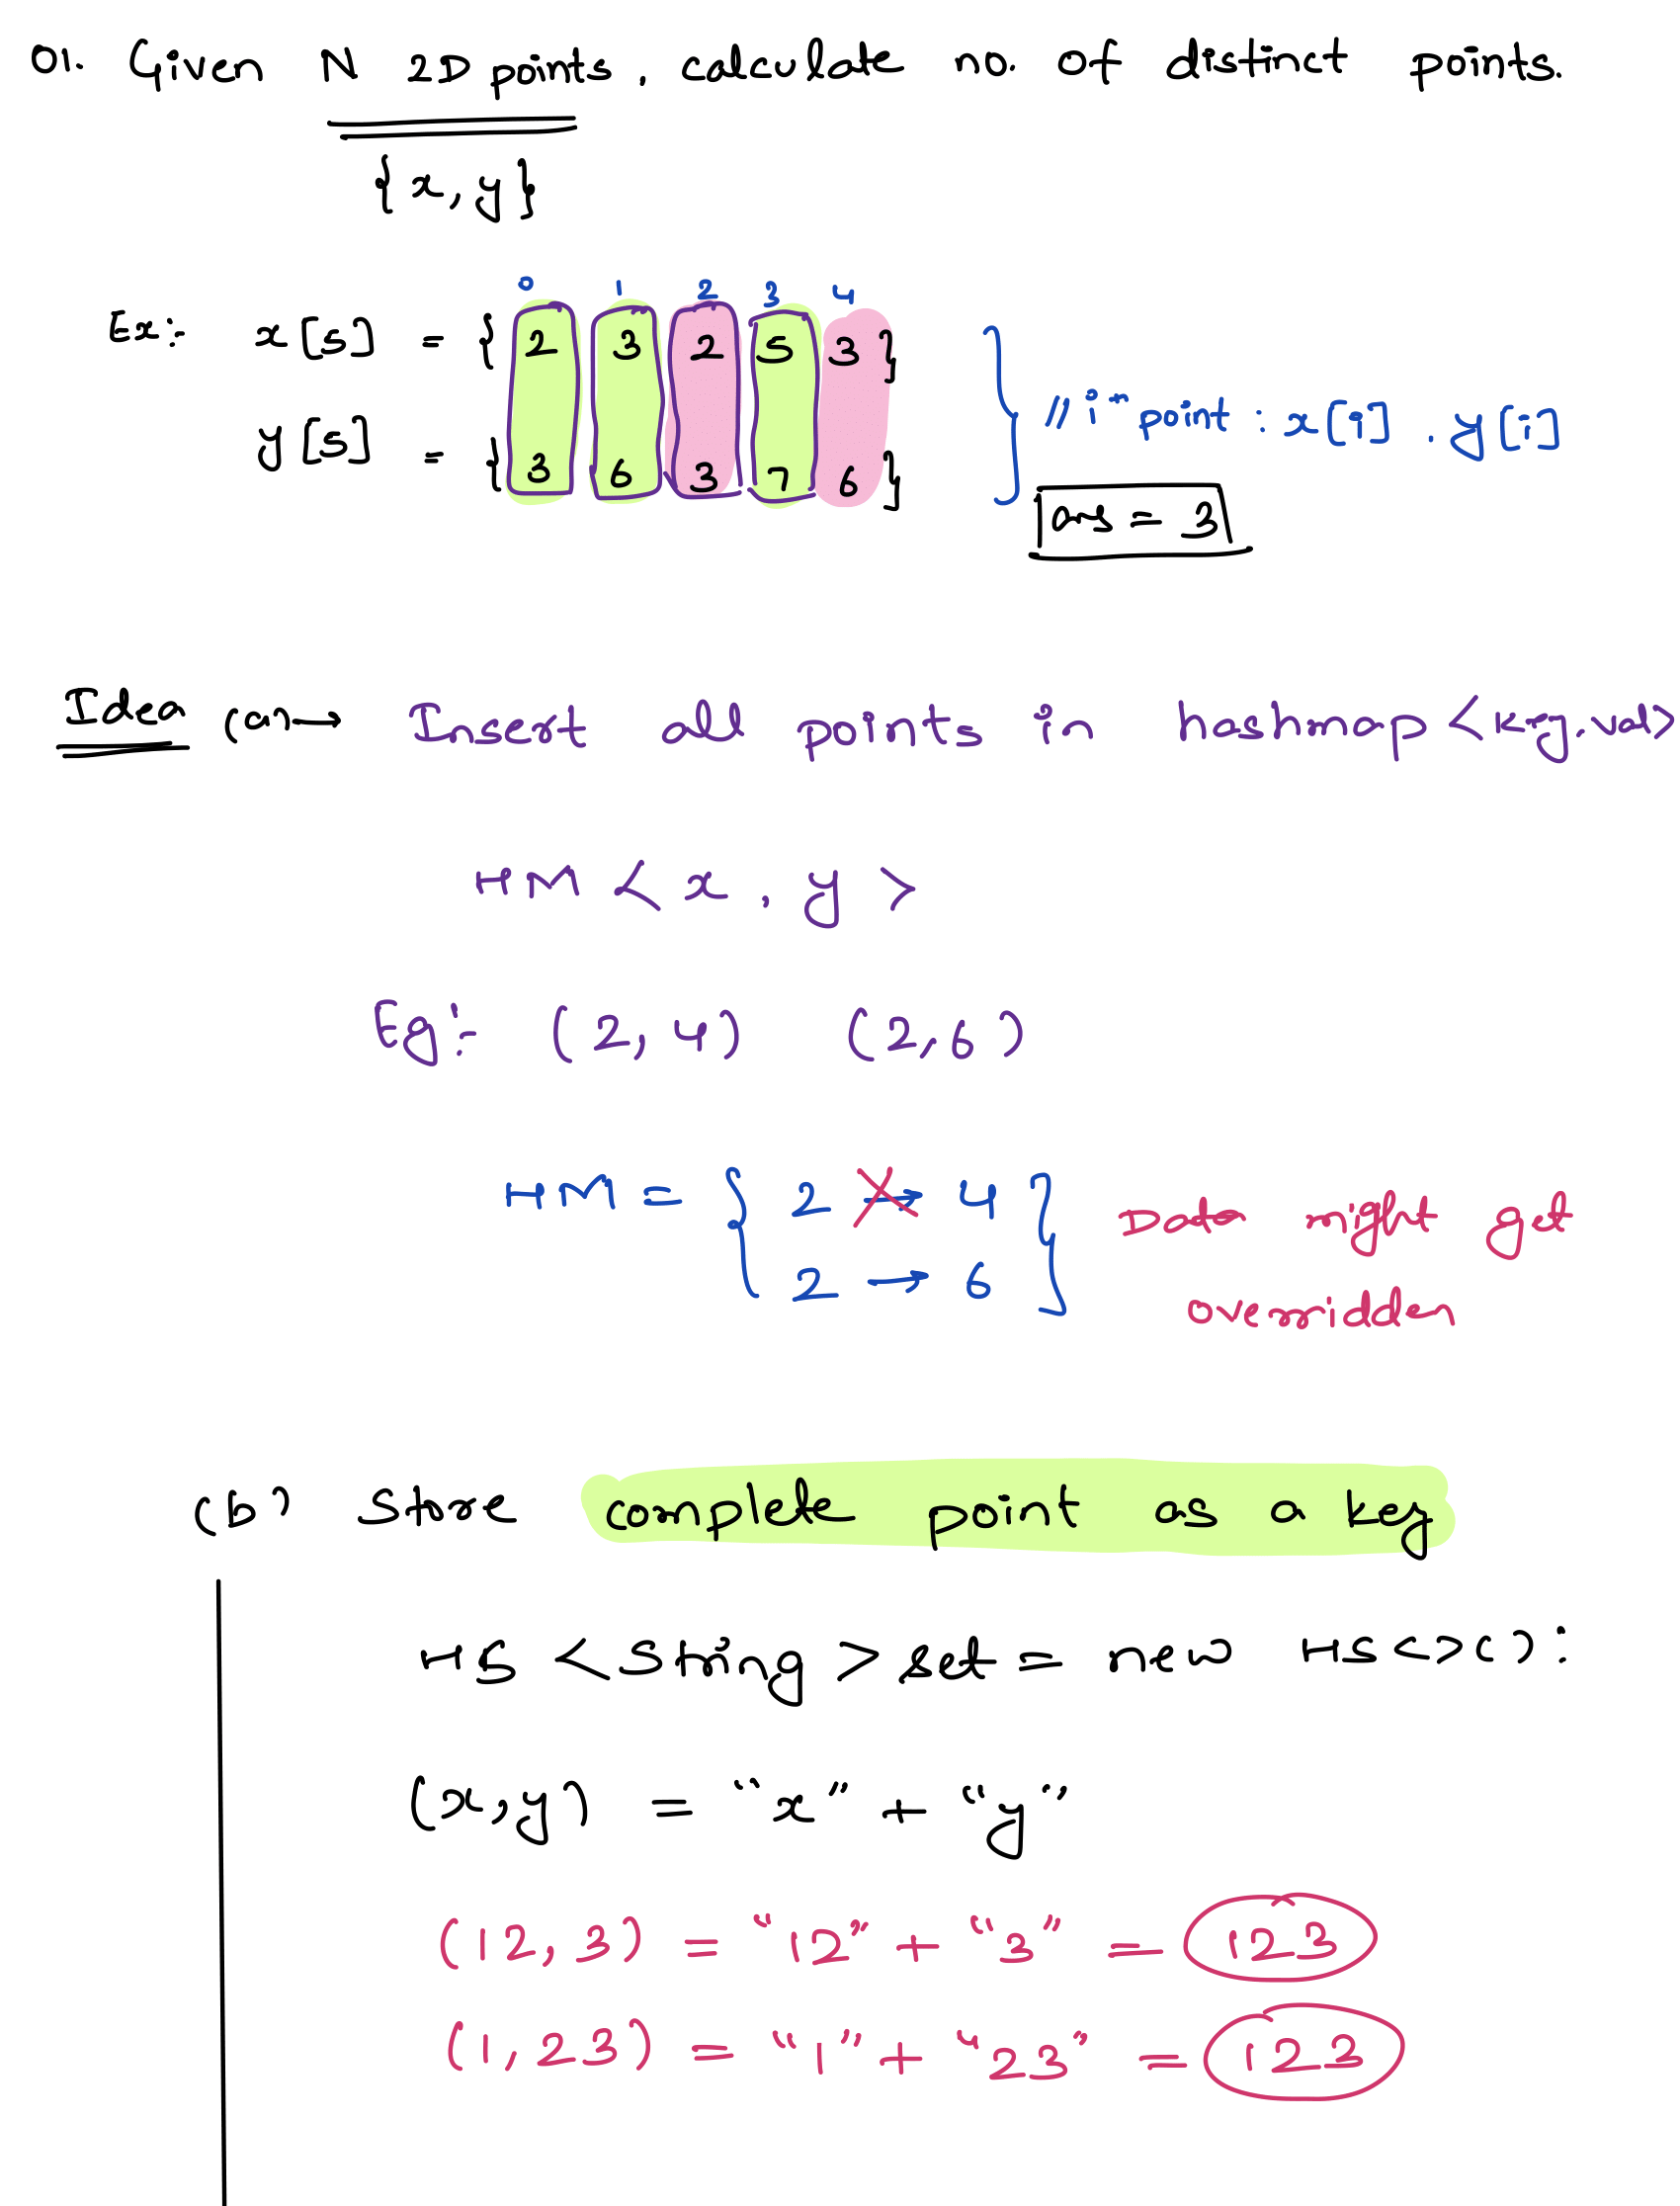 01. Given N 2D points, calculate no. of distinct points.
{x, y}
0 1 2 3 4
Ex: x[5] = {2 3 2 5 3}
y[5] = {3 6 3 7 6}
// ith point : x[i], y[i]
ans = 3
Idea (a) → Insert all points in hashmap <key, val>
HM < x, y >
Eg: (2, 4) (2, 6)
HM = { 2 → 4
2 → 6 }
Data might get
overridden
(b) Store complete point as a key
HS <String> set = new HS<>();
(x, y) = "x" + "y"
(12, 3) = "12" + "3" = 123
(1, 23) = "1" + "23" = 123